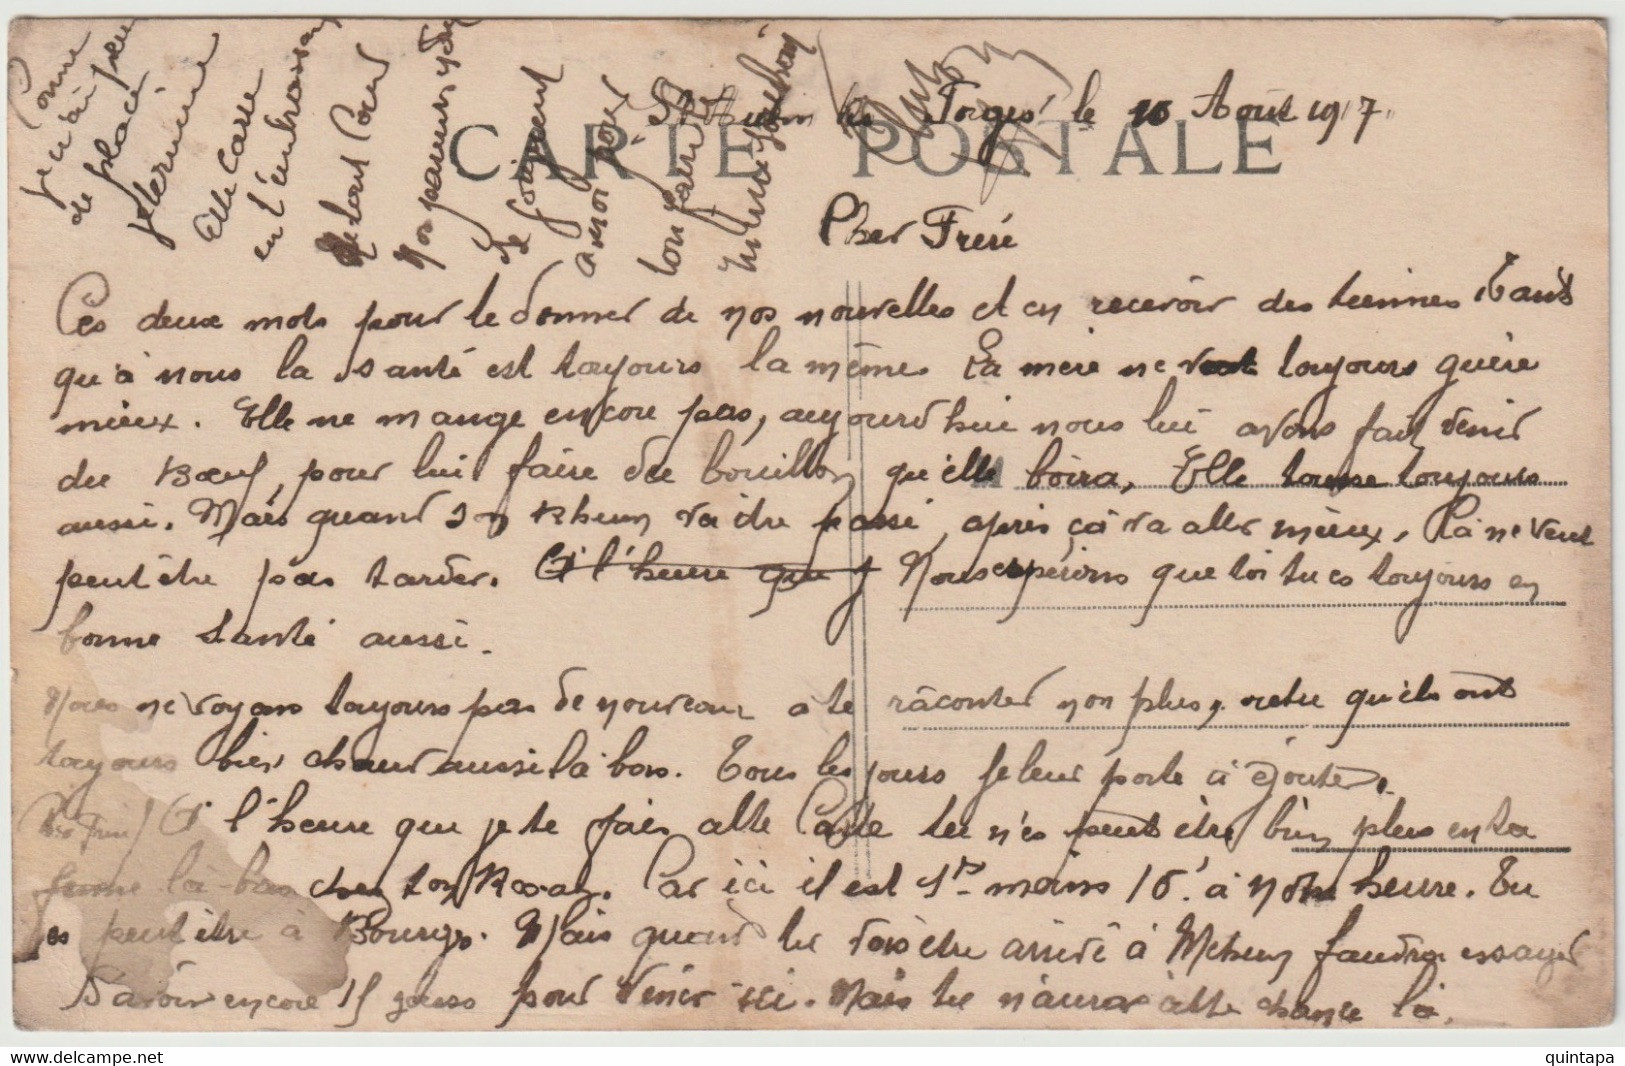 CARTE POSTALE
Forges le 16 Août 1917
Cher Frère
Ces deux mots pour te donner de nos nouvelles et en recevoir des tiennes Tant
qu'à nous la santé est toujours la même. La mère ne veut toujours guère
mieux. Elle ne mange encore pas, aujourd'hui nous lui avons fait venir
du Bœuf, pour lui faire du bouillon qu'elle boira, Elle tousse toujours
aussi. Mais quand son Rhum va être passé, après ça va aller mieux, Ça ne veut
peut être pas tarder. Et l'heure que j Nous espérons que toi tu es toujours en
bonne santé aussi.
Nous ne voyons toujours pas de nouveau à te râconter non plus, qu'ils ont
toujours bien chaud aussi là bas. Tous les jours je leur porte à
Cher Frère, Et l'heure que je te fais cette Carte tu n'es peut être bien plus en ta
ferme là-bas chez ton Roxan. Car ici il est 1h moins 10' à notre heure. Tu
es peut être à Bourges. Mais quand tu vas être arrivé à Mehun faudra essayer
d'avoir encore 15 jours pour venir ici. Mais tu n'auras cette chance là.
Comme
je n'ai plus
de place
je termine
Elle Carte
en t'embrassant
de tout Cœur
Mon pauvre
amour pour
ton frère